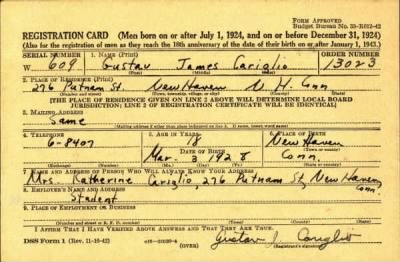 Form Approved
Budget Bureau No. 33-R012-42
REGISTRATION CARD (Men born on or after July 1, 1924, and on or before December 31, 1924)
(Also for the registration of men as they reach the 18th anniversary of the date of their birth on or after January 1, 1943.)
SERIAL NUMBER 1. NAME (Print) ORDER NUMBER
W 609 Gustav James Cariglio 13023
(First) (Middle) (Last)
2. PLACE OF RESIDENCE (Print)
276 Putnam St. New Haven N. H. Conn
(Number and street) (Town, township, village, or city) (County) (State)
[THE PLACE OF RESIDENCE GIVEN ON LINE 2 ABOVE WILL DETERMINE LOCAL BOARD
JURISDICTION; LINE 2 OF REGISTRATION CERTIFICATE WILL BE IDENTICAL]
3. MAILING ADDRESS
Same
[Mailing address if other than place indicated on line 2. If same, insert word same]
4. TELEPHONE 5. AGE IN YEARS 6. PLACE OF BIRTH
6-8407 18 New Haven
DATE OF BIRTH
Mar. 3 192 Conn.
(Mo.) (Day) (Yr.)
7. NAME AND ADDRESS OF PERSON WHO WILL ALWAYS KNOW YOUR ADDRESS
Mrs. Katherine Cariglio 276 Putnam St, New Haven, Conn
8. EMPLOYER'S NAME AND ADDRESS
Student
9. PLACE OF EMPLOYMENT OR BUSINESS
(Number and street or R. F. D. number) (Town) (County) (State)
I AFFIRM THAT I HAVE VERIFIED ABOVE ANSWERS AND THAT THEY ARE TRUE.
DSS Form 1 (Rev. 11-16-42) (OVER) Gustav J. Cariglio